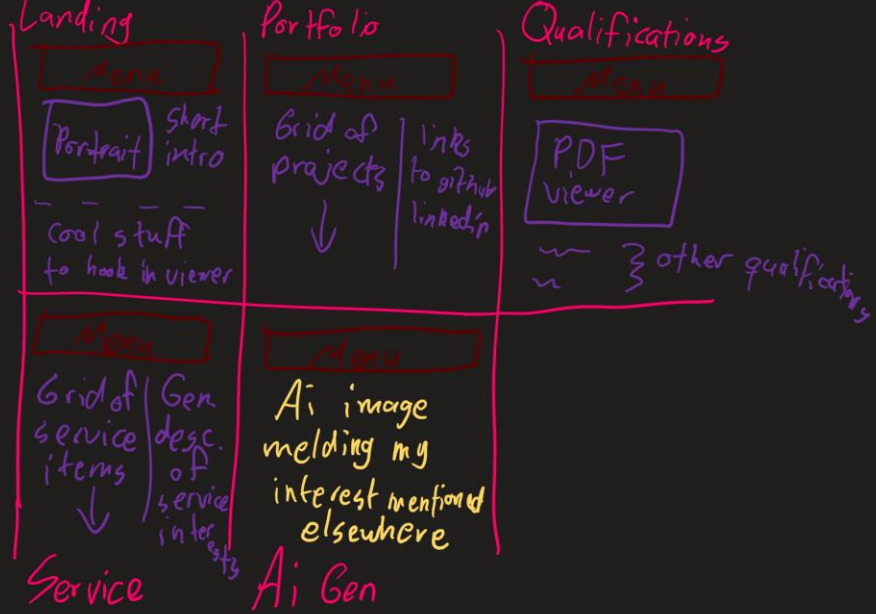 Landing
Menu
Portrait
short
intro
cool stuff
to hook in viewer
Portfolio
Menu
Grid of
projects
links
to github
linkedin
Qualifications
Menu
PDF
viewer
other qualifications
Menu
Grid of
service
items
Gen
desc.
of
service
interests
Service
Menu
Ai image
melding my
interest mentioned
elsewhere
Ai Gen